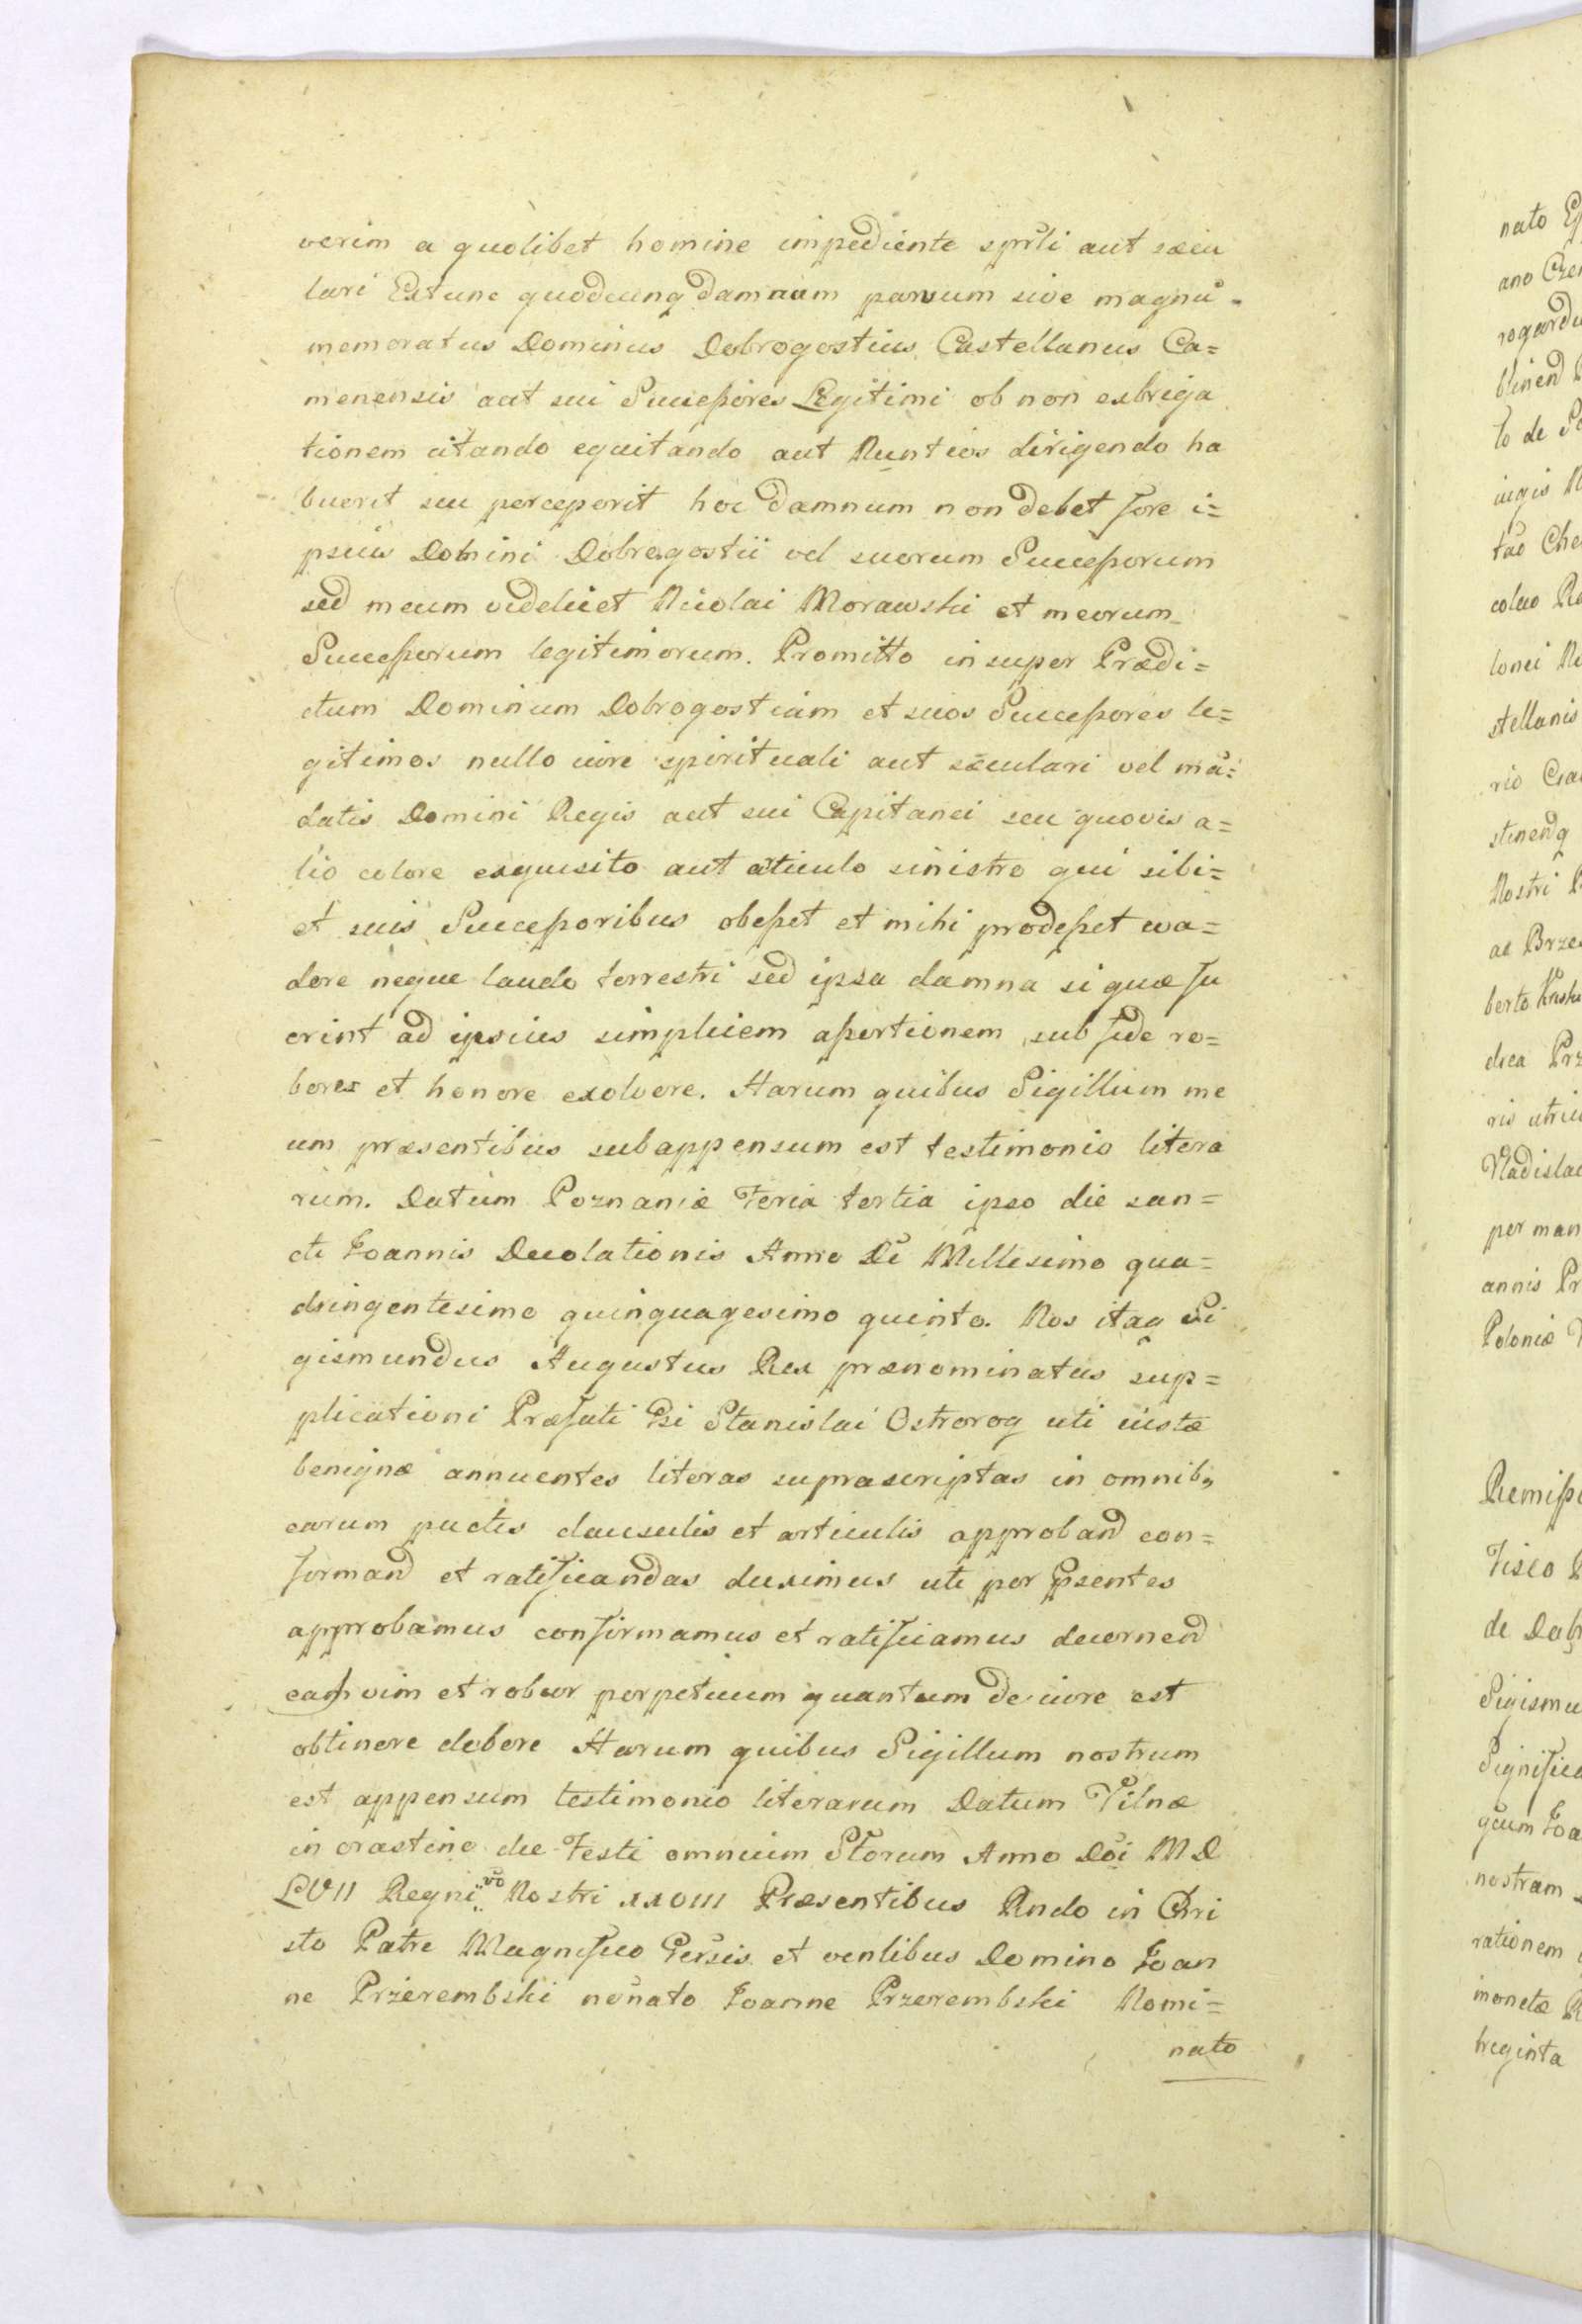 verim a quolibet homine impediente sprli aut sæcu
lari Extunc quodcunq damnum parvum sive magnū
memoratus Dominus Dobrogostius Castellanus Ca=
menensis aut sui Successores Legitimi ob non exbriga
tionem citando equitando aut Nuntios dirigendo ha
buerit seu perceperit hoc damnum non debet fore i=
psius Domini Dobrogostii vel suorum Successorum
sed meum videlicet Nicolai Morawski et meorum
Successorum legitimorum. Promitto insuper Prædi=
ctum Dominum Dobrogostium et suos Successores le=
gitimos nullo iure spirituali aut sæculari vel mā=
datis Domini Regis aut sui Capitanei seu quovis a=
lio colore exquisito aut aticulo sinistro qui sibi=
et suis Successoribus obesset et mihi prodesset eva=
dere neque laudo terrestri sed ipsa damna si quæ fu
erint ad ipsius simplicem assertionem sub fide ro=
bore et honore exolvere. Harum quibus Sigillum me
um præsentibus subappensum est testimonio litera
rum. Datum Poznaniæ Feria tertia ipso die san=
cti Joannis Decolationis Anno Di Millesimo qua=
dringentesimo quinquagesimo quinto. Nos itaq Si
gismundus Augustus Rex prænominatus sup=
plicationi Præfati Gsi Stanislai Ostrorog uti iustæ
benignæ annuentes literas suprascriptas in omnib9
earum puctis clausulis et articulis approband con=
formand et ratificandas duximus uti per psentes
approbamus confirmamus et ratificamus decernend
eas vim et robur perpetuum quantum de iure est
obtinere debere Harum quibus Sigillum nostrum
est appensum testimonio literarum Datum Vilnæ
in crastino die Festi omnium Storum Anno Doi MD
LVII Regni vo Nostri XXVIII Præsentibus Rndo in Chri
sto Patre Magnifico Gersis et venlibus Domino Joan
ne Przerembski nōnato Joanne Przerembski Nomi=
nato
nato
ano
to de
colao
lonei
stellanis
Nostri
berto
per man
annis Pr
Poloniæ
de Dab
nostram
rationem
monetæ
treginta